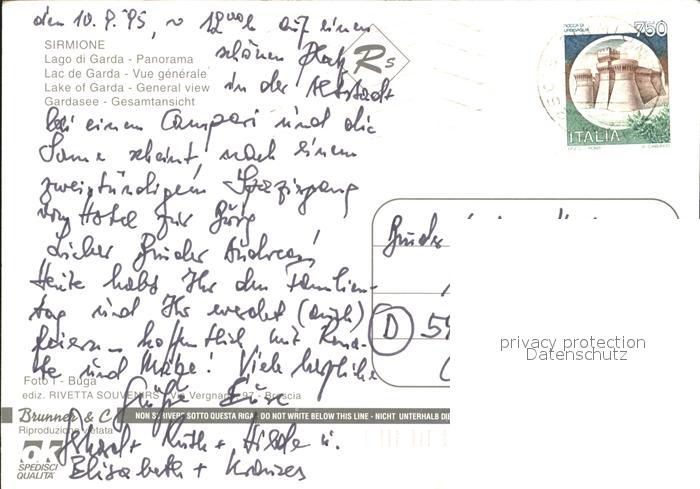 den 10. 9. 95, ~ 12 Uhr auf einem
schönen Platz
in der Altstadt
bei einem Campari und die
Sonne scheint, nach einem
zweistündigem Spaziergang
vom Hotel zur Burg
Lieber Bruder Andreas!
Heute habt Ihr den Familien-
tag und Ihr werdet (auch)
feiern - hoffentlich mit
und Viele herzliche
Grüße Eure
+ Ruth + u.
Elisabeth +
SIRMIONE
Lago di Garda - Panorama
Lac de Garda - Vue générale
Lake of Garda - General view
Gardasee - Gesamtansicht
Rs
ROCCA DI URBISAGLIA
750
ITALIA
I.P.Z.S. - ROMA
Bruder
D 54
privacy protection
Datenschutz
Foto I - Buga
ediz. RIVETTA SOUVENIRS - Via Vergnano 97 - Brescia
Brunner & C
NON SCRIVERE SOTTO QUESTA RIGA - DO NOT WRITE BELOW THIS LINE - NICHT UNTERHALB DIE
Riproduzione vietata
ok
SPEDISCI
QUALITÀ